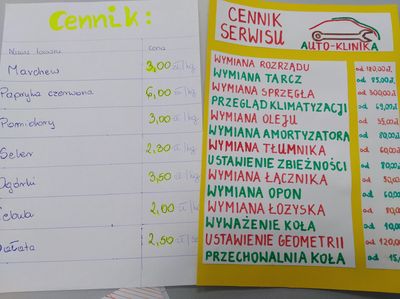 Cennik:
Nazwa towaru cena
Marchew 3,00 zł/kg
Papryka czerwona 6,00 zł/kg
Pomidory 3,00 zł/kg
Seler 2,80 zł/kg
Ogórki 3,50 zł/kg
Cebula 2,00 zł/kg
Sałata 2,50
CENNIK
SERWISU
AUTO-KLINIKA
WYMIANA ROZRZĄDU od 120,00zł.
WYMIANA TARCZ od 85,00zł.
WYMIANA SPRZĘGŁA od 300,00zł
PRZEGLĄD KLIMATYZACJI od 69,00zł.
WYMIANA OLEJU od 35,00zł
WYMIANA AMORTYZATORA od 80,00zł
WYMIANA TŁUMNIKA od 60,00zł
USTAWIENIE ZBIEŻNOŚCI od 80,00
WYMIANA ŁĄCZNIKA od
WYMIANA OPON od 60,00
WYMIANA ŁOZYSKA od 80,0
WYWAŻENIE KOŁA od
USTAWIENIE GEOMETRII od 120,0
PRZECHOWALNIA KOŁA od 15,